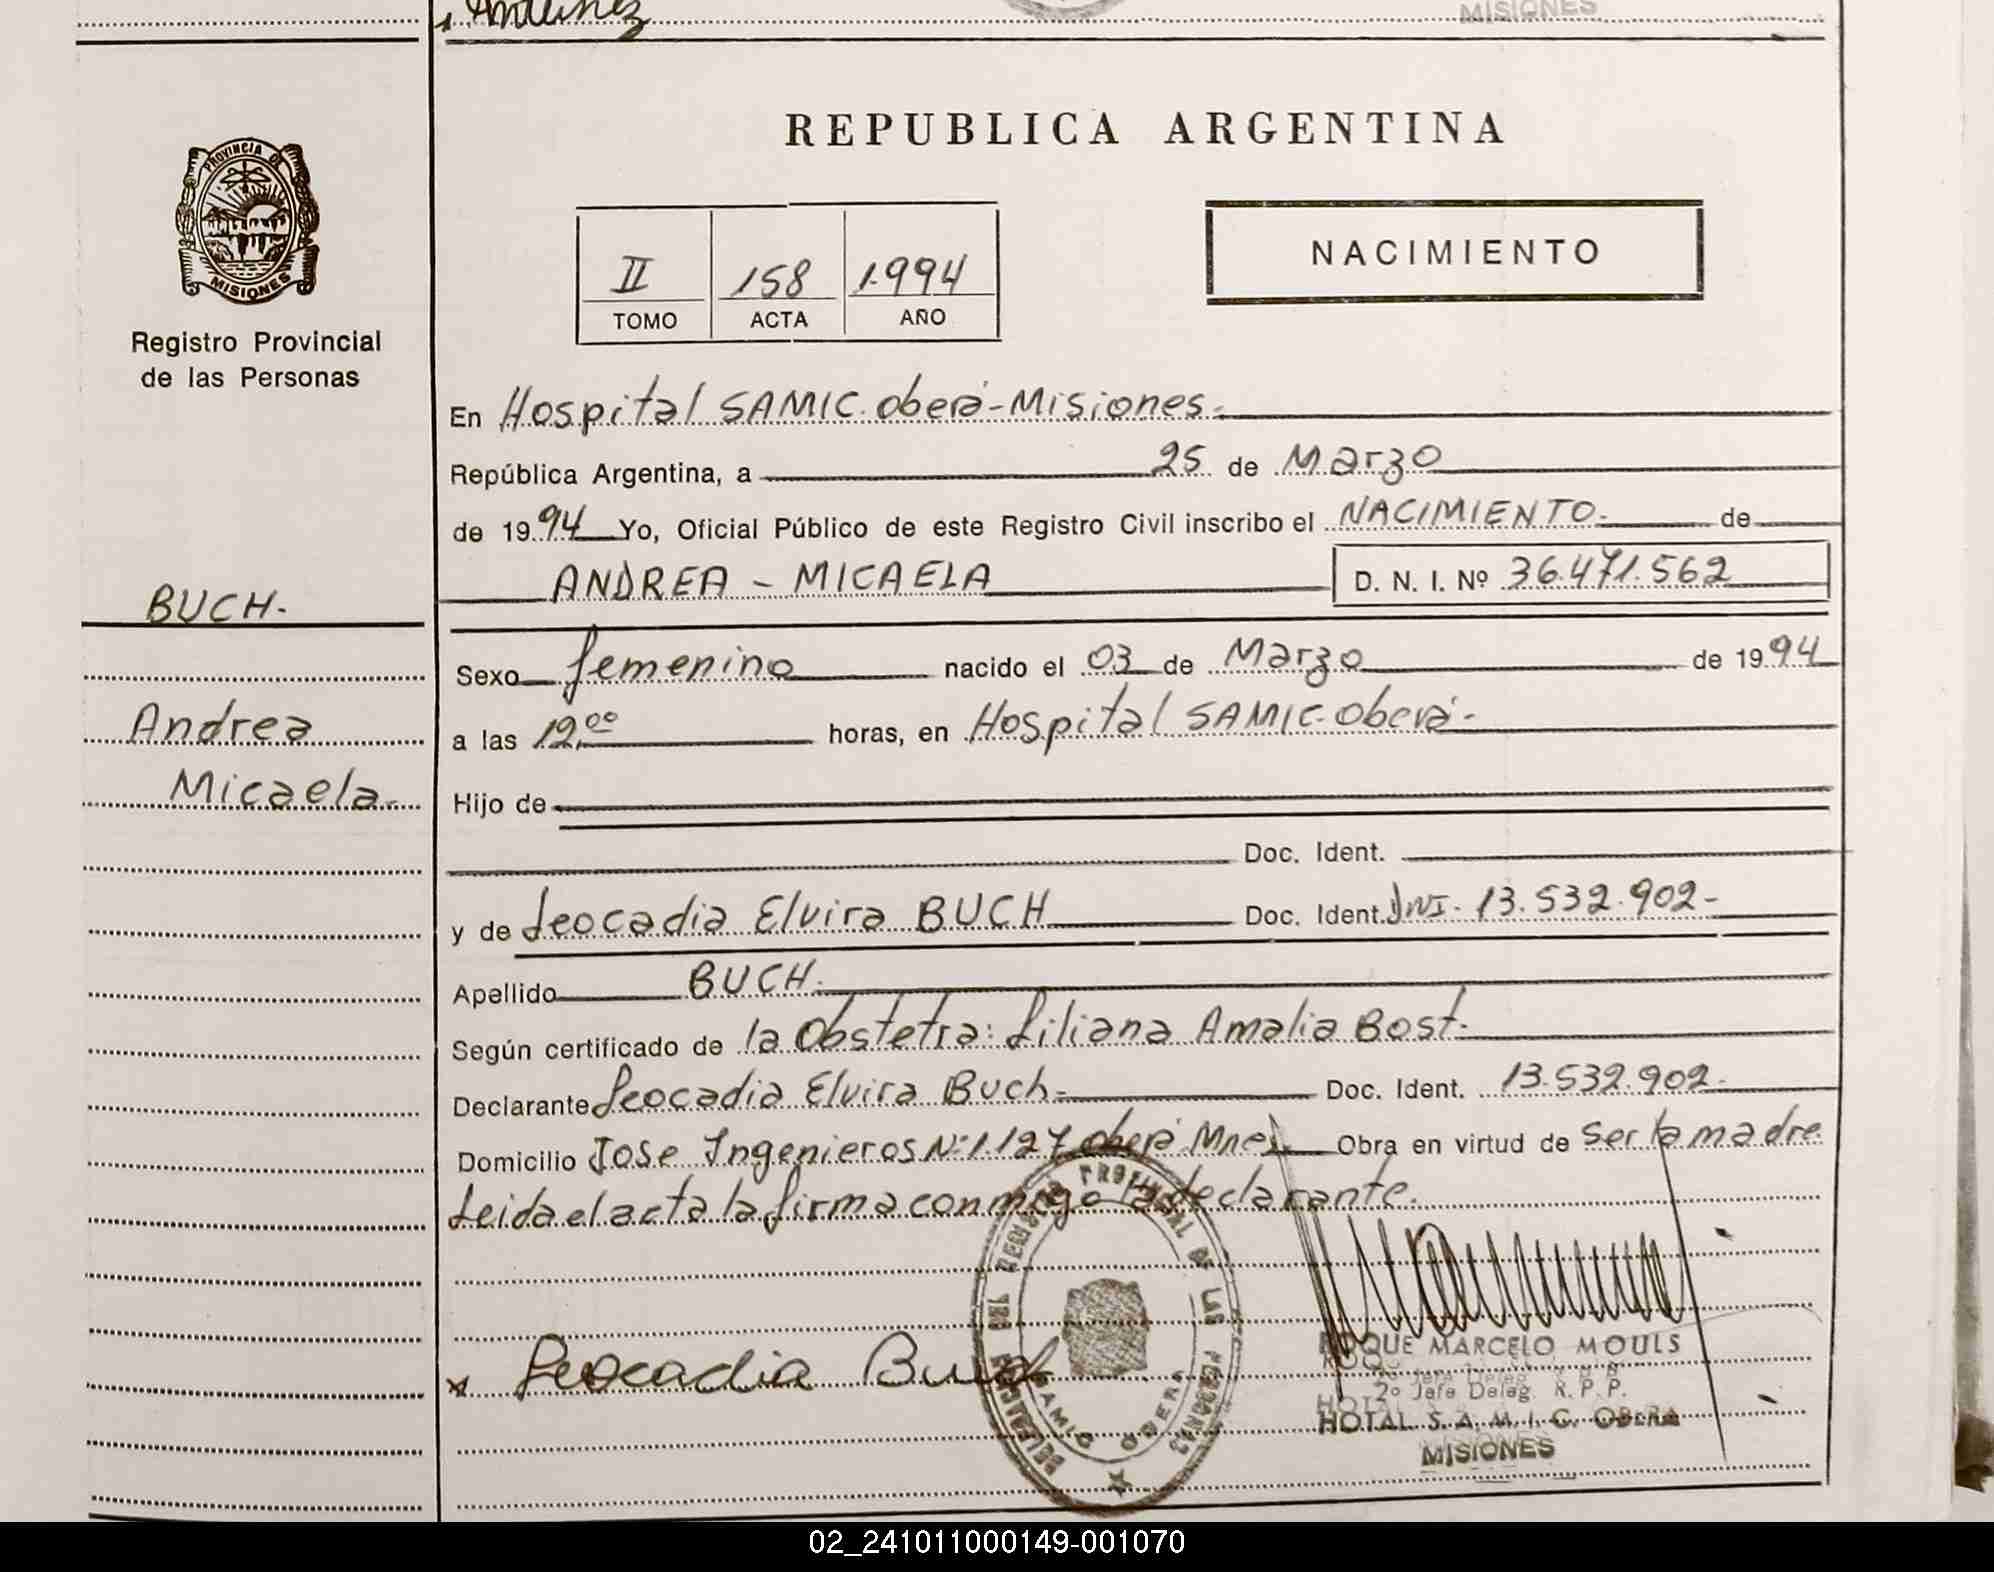 MISIONES
PROVINCIA DE
MISIONES
Registro Provincial
de las Personas
BUCH-
Andrea
Micaela-
REPUBLICA ARGENTINA
II 158 1994
TOMO ACTA AÑO
NACIMIENTO
En Hospital SAMIC. Oberá-Misiones-
República Argentina, a 25 de Marzo
de 1994 Yo, Oficial Público de este Registro Civil inscribo el NACIMIENTO- de
ANDREA - MICAELA D. N. I. Nº 36.471.562
Sexo femenino nacido el 03 de Marzo de 1994
a las 12,00 horas, en Hospital SAMIC-Oberá-
Hijo de
Doc. Ident.
y de Leocadia Elvira BUCH Doc. Ident. DNI- 13.532.902-
Apellido BUCH-
Según certificado de la Obstetra: Liliana Amalia Bost-
Declarante Leocadia Elvira Buch- Doc. Ident. 13.532.902-
Domicilio Jose Ingenieros Nº 1.127 Oberá Mnes Obra en virtud de ser la madre
Leida el acta la firma conmigo la declarante.
x Leocadia Buch
REGISTRO PROVINCIAL DE LAS PERSONAS
SAMIC OBERA
ROQUE MARCELO MOULS
2º Jefe Deleg. R. P. P.
HOTAL S. A. M. I. C. OBERA
MISIONES
02_241011000149-001070